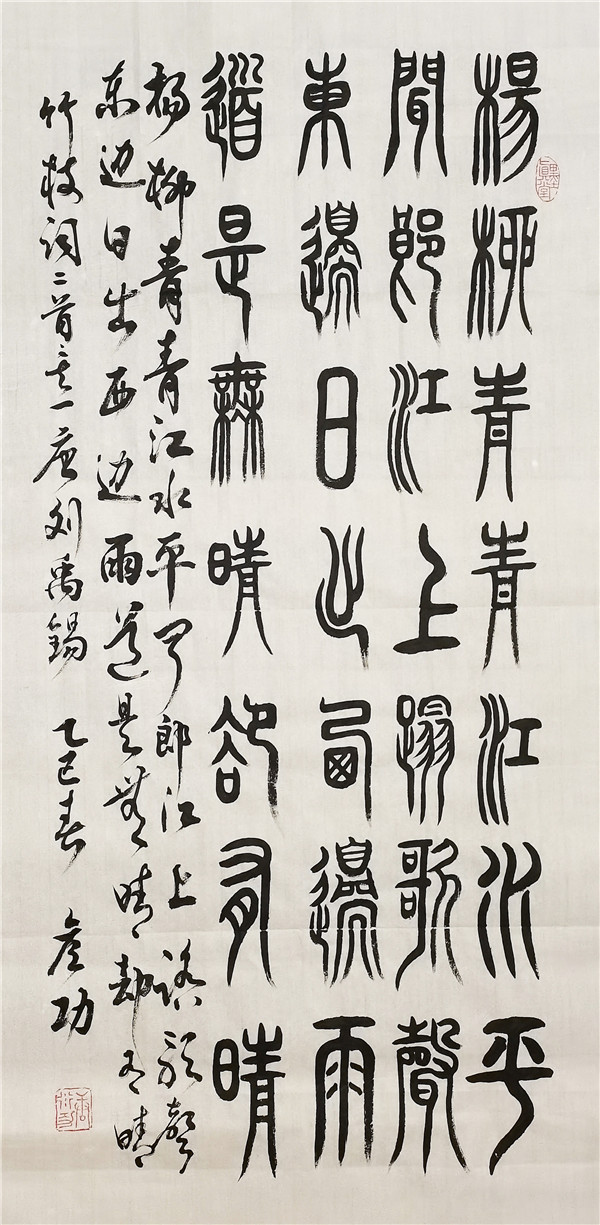 楊柳青青江水平
聞郎江上蹋歌聲
東邊日出西邊雨
道是無晴卻有晴
杨柳青青江水平闻郎江上踏歌聲
东边日出西边雨道是無晴却有晴
竹枝词二首其一 唐刘禹锡 乙巳春 功